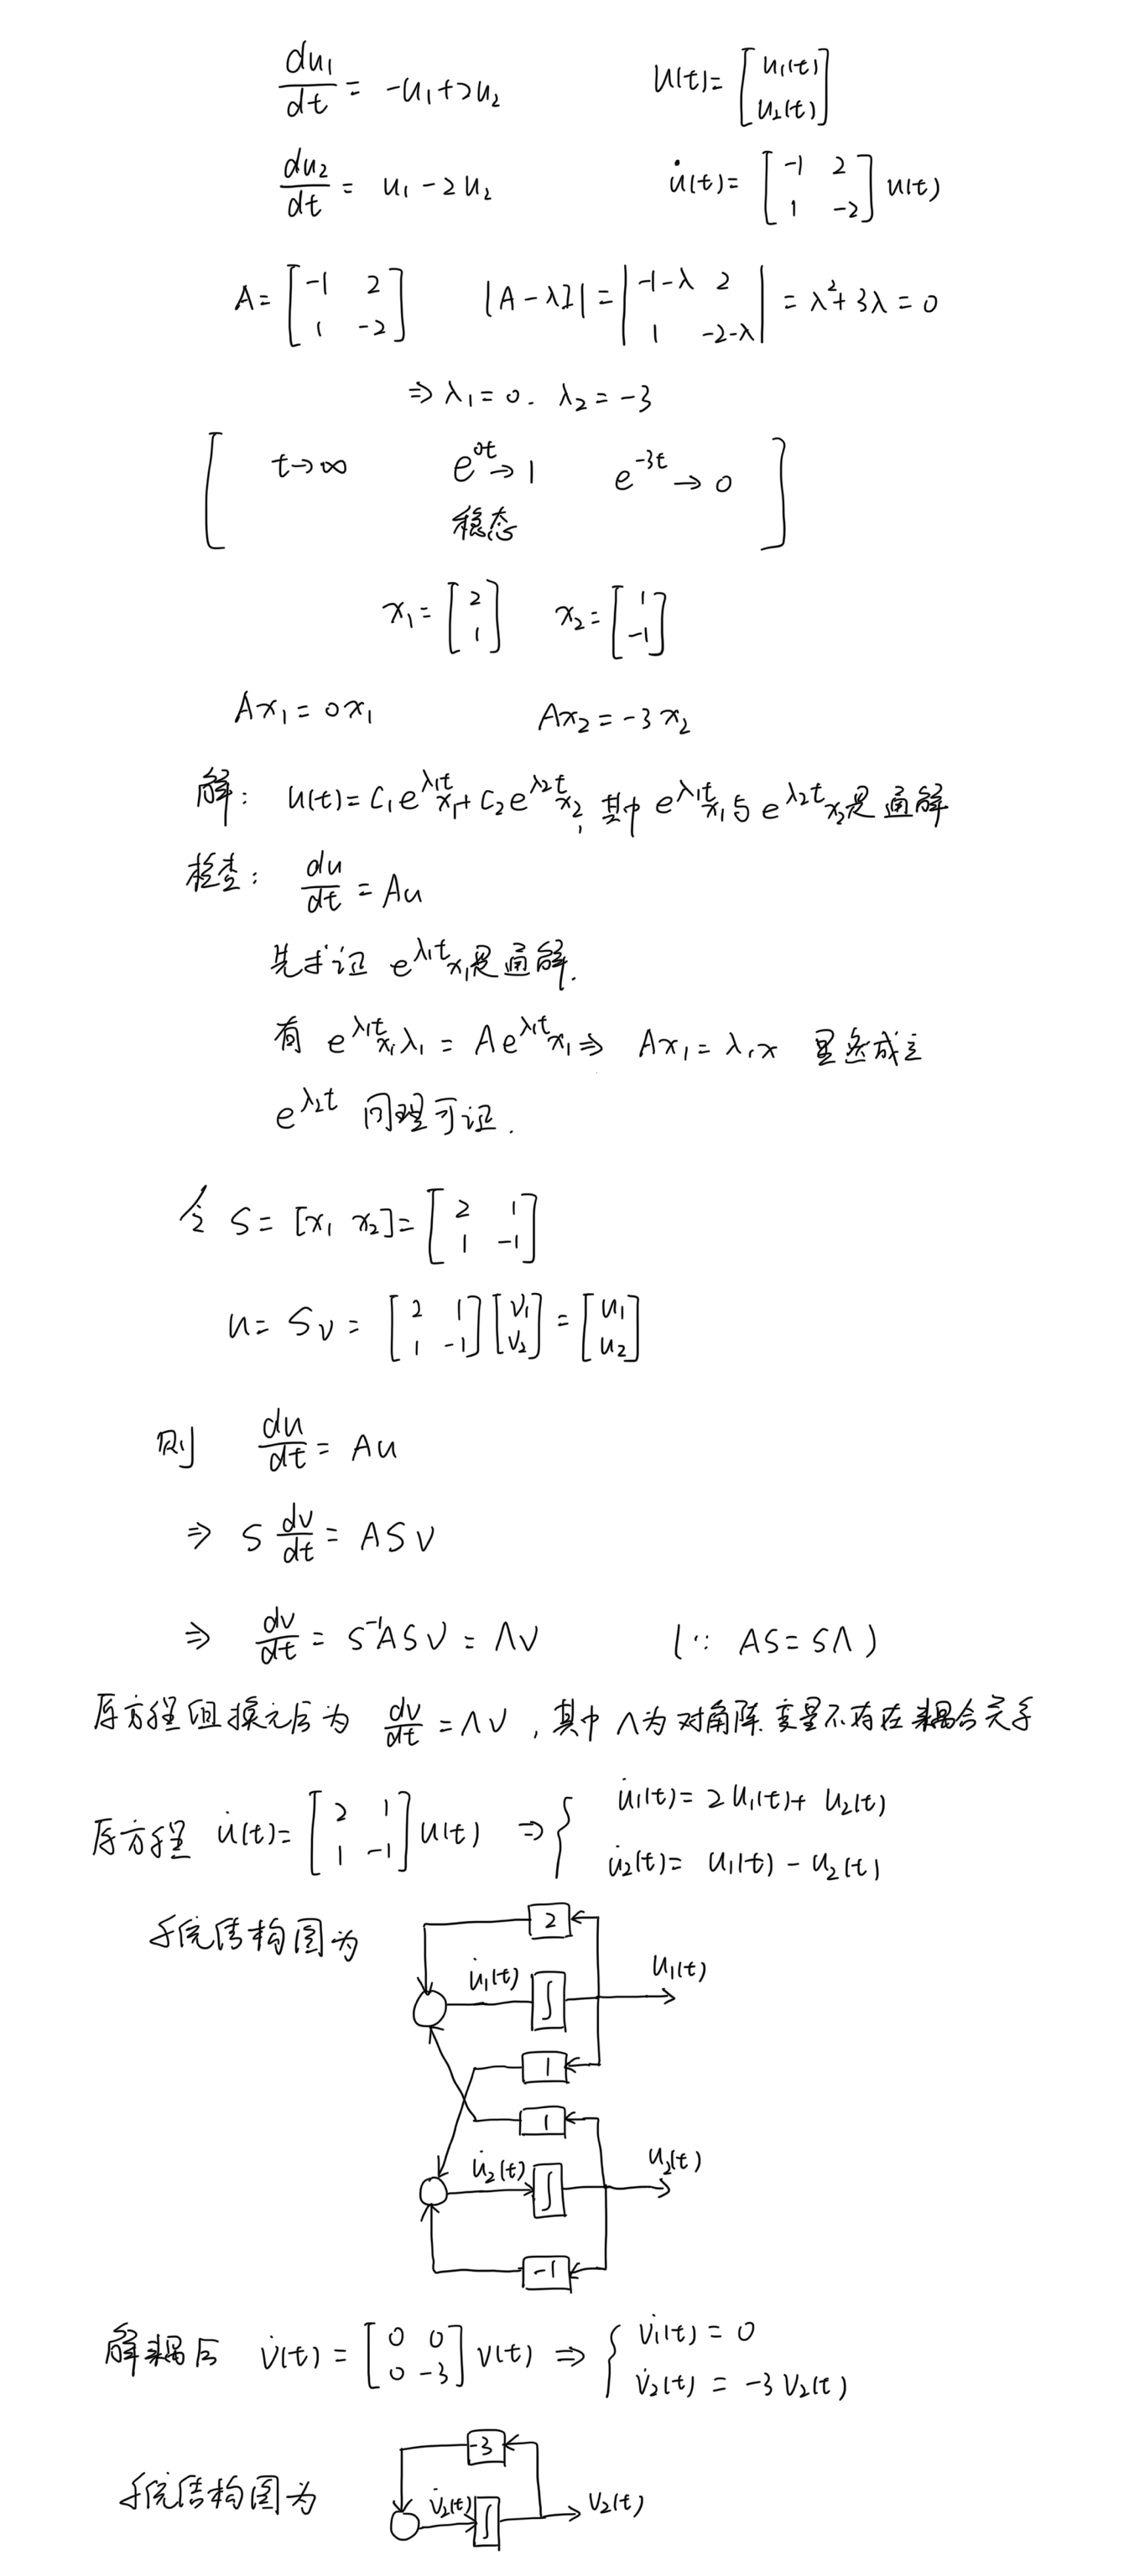 du₁/dt = -u₁+2u₂    u(t)= [u₁(t); u₂(t)]
du₂/dt = u₁-2u₂    u̇(t)= [-1 2; 1 -2] u(t)
A= [-1 2; 1 -2]    |A-λI| = |-1-λ 2; 1 -2-λ| = λ²+3λ = 0
⇒ λ₁=0. λ₂=-3
[ t→∞    e^{0t}→1    e^{-3t}→0 ]
稳态
x₁= [2; 1]    x₂= [1; -1]
Ax₁=0x₁    Ax₂=-3x₂
解: u(t)=C₁e^{λ₁t}x₁+C₂e^{λ₂t}x₂, 其中 e^{λ₁t}x₁与e^{λ₂t}x₂是通解
检查: du/dt = Au
先求证 e^{λ₁t}x₁是通解.
有 e^{λ₁t}x₁λ₁ = Ae^{λ₁t}x₁ ⇒ Ax₁=λ₁x 显然成立
e^{λ₂t} 同理可证.
令 S= [x₁ x₂]= [2 1; 1 -1]
u= Sv = [2 1; 1 -1] [v₁; v₂] = [u₁; u₂]
则 du/dt = Au
⇒ S dv/dt = ASv
⇒ dv/dt = S⁻¹ASv = Λv    (∵ AS=SΛ)
原方程组换元后为 dv/dt =Λv, 其中Λ为对角阵.变量不存在耦合关系
原方程 u̇(t)= [2 1; 1 -1] u(t) ⇒ { u̇₁(t)=2u₁(t)+u₂(t)
u̇₂(t)= u₁(t)-u₂(t)
系统结构图为
2
u̇₁(t) ∫ u₁(t)
1
1
u̇₂(t) ∫ u₂(t)
-1
解耦后 v̇(t)= [0 0; 0 -3] v(t) ⇒ { v̇₁(t)=0
v̇₂(t)=-3v₂(t)
-3
系统结构图为 v̇₂(t) ∫ v₂(t)